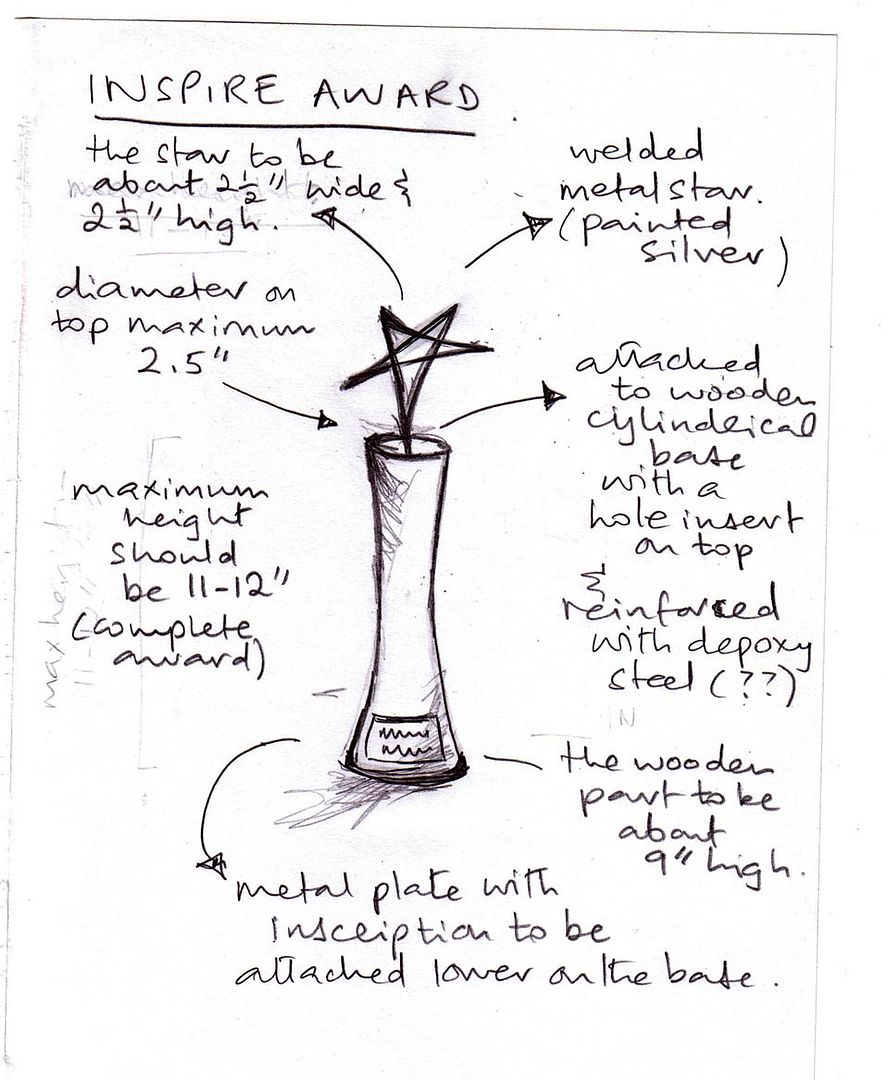 INSPIRE AWARD
the star to be
about 2½" wide &
2½" high.
welded
metal star.
(painted
silver)
diameter on
top maximum
2.5"
attached
to wooden
cylinderical
base
with a
hole insert
on top
&
reinforced
with depoxy
steel (??)
maximum
height
should
be 11-12"
(complete
award)
max height
11-
IN
the wooden
part to be
about
9" high.
metal plate with
insceiption to be
attached lower on the base.